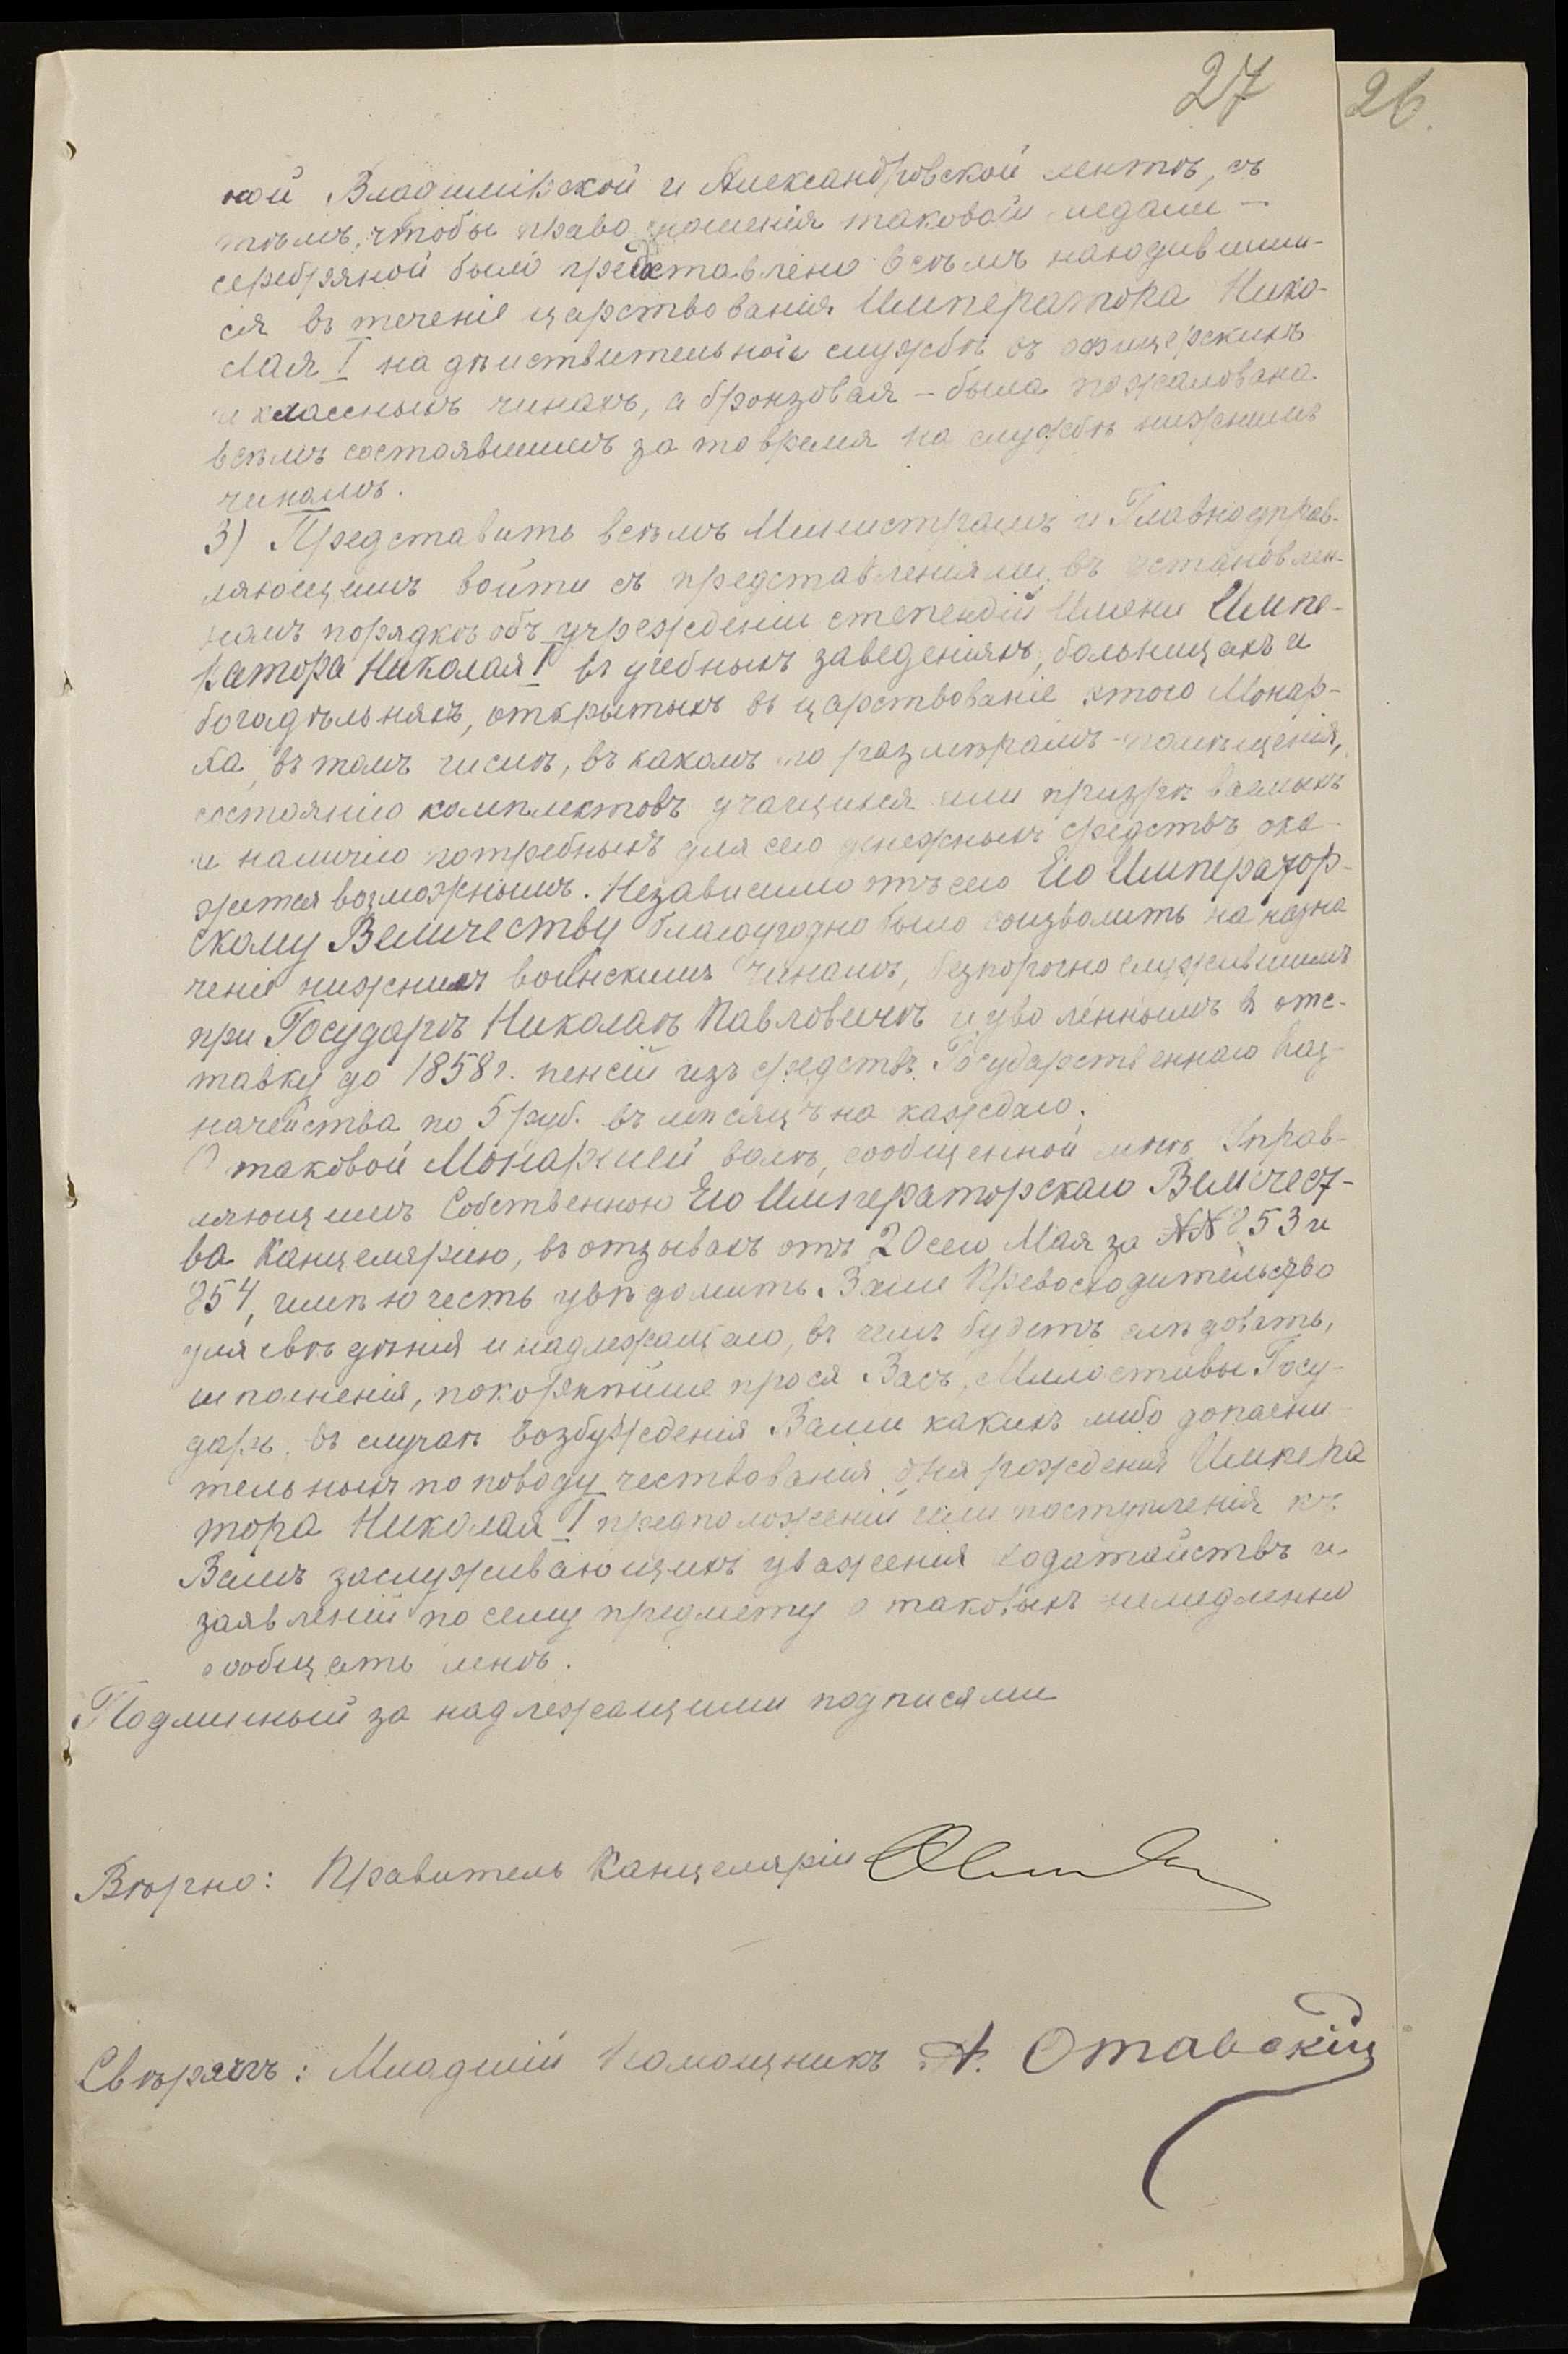 27
26.
ной Владимірской и Александровской лентѣ, съ
тѣмъ, чтобы право ношенія таковой медали –
серебряной было предоставлено всѣмъ находившим-
ся въ теченіе царствованія Императора Нико-
лая I на дѣйствительной службѣ въ офицерскихъ
и классныхъ чинахъ, а бронзовая – была пожалована
всѣмъ состоявшимъ за то время на службѣ нижнимъ
чинамъ.
3) Представить всѣмъ Министрамъ и Главноуправ-
ляющимъ войти съ представленіями, въ установлен-
номъ порядкѣ объ учрежденіи степендій Имени Импе-
ратора Николая I въ учебныхъ заведеніяхъ, больницахъ и
богадѣльняхъ, открытыхъ въ царствованіе этого Монар-
ха, въ томъ числѣ, въ какомъ по размѣрамъ помѣщенія,
состоянію комплектовъ учащихся или призрѣваемыхъ
и наличію потребныхъ для сего денежныхъ средствъ ока-
жется возможнымъ. Независимо отъ сего Его Император-
скому Величеству благоугодно было соизволить на назна
ченіе нижнимъ воинскимъ чинамъ, безпорочно служившимъ
при Государѣ Николаѣ Павловичѣ и уволеннымъ въ отс-
тавку до 1858 г. пенсій изъ средствъ Государственнаго Каз-
начейства по 5 руб. въ мѣсяцъ на каждаго.
О таковой Монаршей волѣ, сообщенной мнѣ Управ-
ляющимъ Собственною Его Императорскаго Величест-
ва Канцеляріею, въ отзывахъ отъ 20 сего Мая за №№ 853 и
854, имѣю честь увѣдомить Ваше Превосходительство
для свѣдѣнія и надлежащаго, въ чемъ будетъ слѣдовать,
исполненія, покорнѣйше прося Васъ, Милостивый Госу-
дарь, въ случаѣ возбужденія Вами какихъ либо дополни-
тельныхъ по поводу чествованія дня рожденія Импера
тора Николая I предположеній или поступленія къ
Вамъ заслуживающихъ уваженія ходатайствъ и
заявленій по сему предмету о таковыхъ немедленно
сообщать мнѣ.
Подлинный за надлежащими подписями
Вѣрно: Правитель Канцеляріи
Свѣрялъ: Младшій Помощникъ А. Отавскій